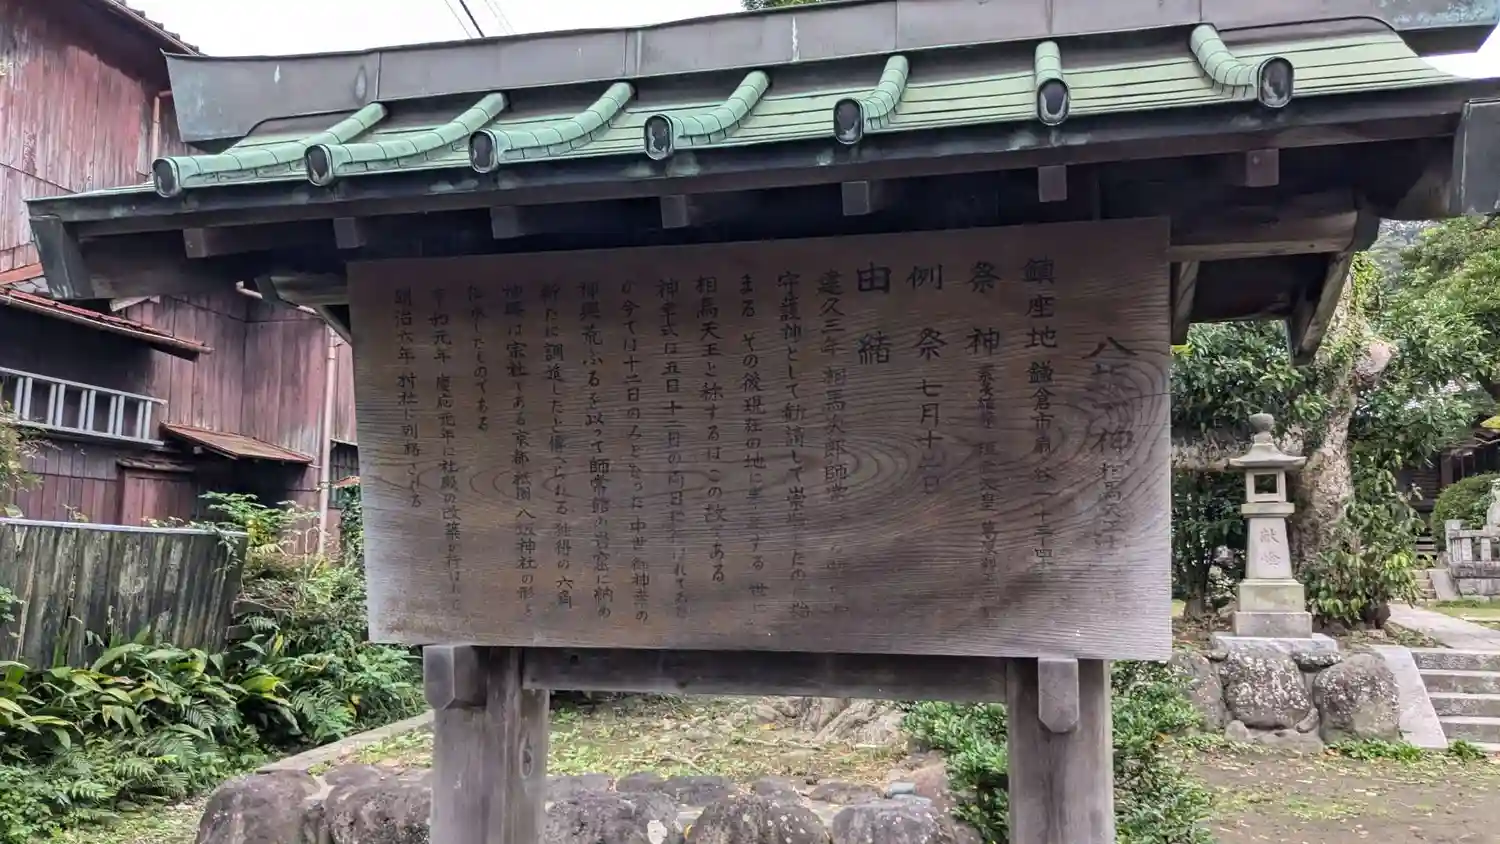 八坂神 相馬天王
鎮座地 鎌倉市扇 谷一丁
祭神 素戔雄尊 桓武天皇 葛原親王
例祭 七月十二日
由緒
建久三年 相馬次郎師常
守護神として勧請して崇 したの 始
まる その後現在の地に する 世に
相馬天王と称するはこの故である
神幸式は五日十二日の両日 行はれてゐた
が今では十二日のみとなった 中世 御神幸の
神輿荒ふるを以って師常館の岩窟に納め
新たに調進したと傳へられる 独得の六角
神輿は宗社である京都祇園八坂神社の形を
したものである
享和元年 慶応元年に社殿の改築が行はれて
明治六年 村社に列格される
献燈